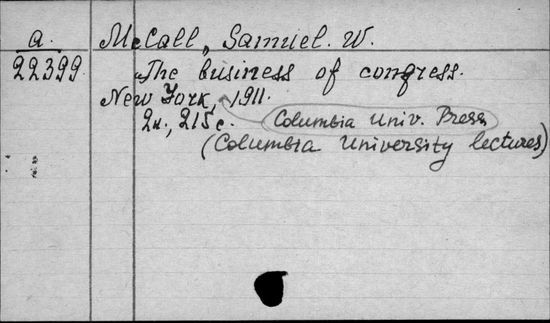 a. McCall, Samuel. W.
22399. The business of congress.
New York, 1911.
2n., 215c. Columbia Univ. Press
(Columbia University lectures)